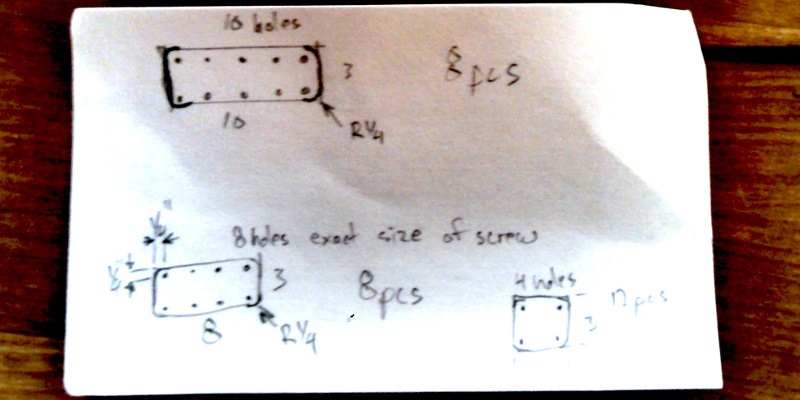 10 holes
3
8pcs
10
R1/4
8 holes exact size of screw
3
8pcs
8
R1/4
4 holes
12 pcs
3